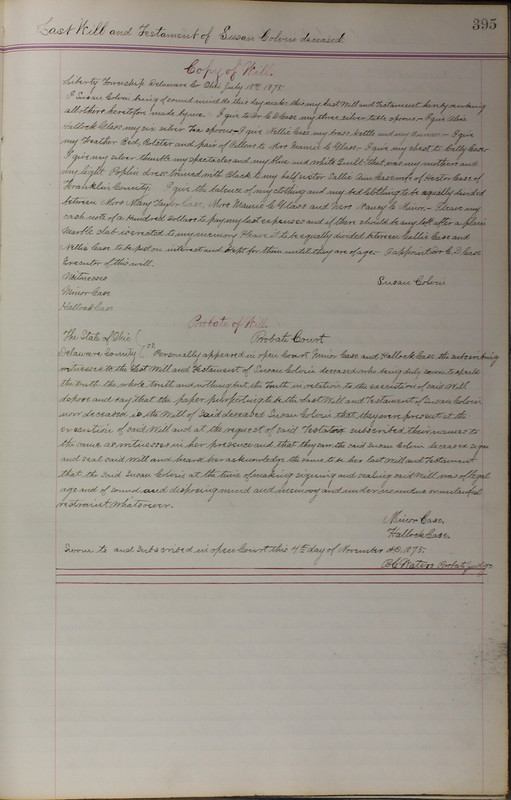 395
Last Will and Testament of Susan Colvin deceased
Copy of Will.
Liberty Township Delaware Co Ohio July 18th 1875
I Susan Colvin being of sound mind do this day make this my last Will and Testament hereby revoking
all others heretofore made by me. I give to Dr E D Case my three silver table spoons - I give Miss
Hallock Glass my six silver Tea spoons - I give Nellie Case my brass kettle and my - I give
my Feather Bed, Bolster and pair of Pillows to Mrs Mamie C Glass - I give my chest to Callie Case
I give my silver thimble my spectacles and my blue and white Quilt that was my mothers and
my light Poplin dress trimmed with Black to my half sister Sallie Ann Case wife of Hester Case of
Franklin County. I give the balance of my clothing and my bed clothing to be equally divided
between Mrs Mary Taylor Case, Mrs Mamie C Glass and Mrs Nancy C Minor - I leave my
cash note of a Hundred dollars to pay my last expenses and if there should be any left after a plain
Marble slab is erected to my memory I leave it to be equally divided between Callie Case and
Nellie Case to be put on interest and kept for them untill they are of age. I appoint Dr E. D. Case
Executor of this will.
Susan Colvin
Witnesses
Minor Case
Hallock Case
Probate of Will.
The State of Ohio
Delaware County ss Probate Court
Personally appeared in open Court Minor Case and Hallock Case the subscribing
witnesses to the Last Will and Testament of Susan Colvin deceased who being duly sworn to speak
the truth the whole truth and nothing but the truth in relation to the execution of said Will
depose and say that the paper purporting to be the Last Will and Testament of Susan Colvin
now deceased is the Will of said deceased Susan Colvin that they were present at the
execution of said Will and at the request of said Testator subscribed their names to
the same as witnesses in her presence and that they saw the said Susan Colvin deceased sign
and seal said Will and heard her acknowledge the same to be her last Will and Testament
that the said Susan Colvin at the time of making signing and sealing said Will was of legal
age and of sound and disposing mind and memory and under no undue or unlawful
restraint whatsoever.
Minor Case.
Hallock Case.
Sworn to and subscribed in open Court this 4th day of November AD. 1875.
B C Waters Probate Judge